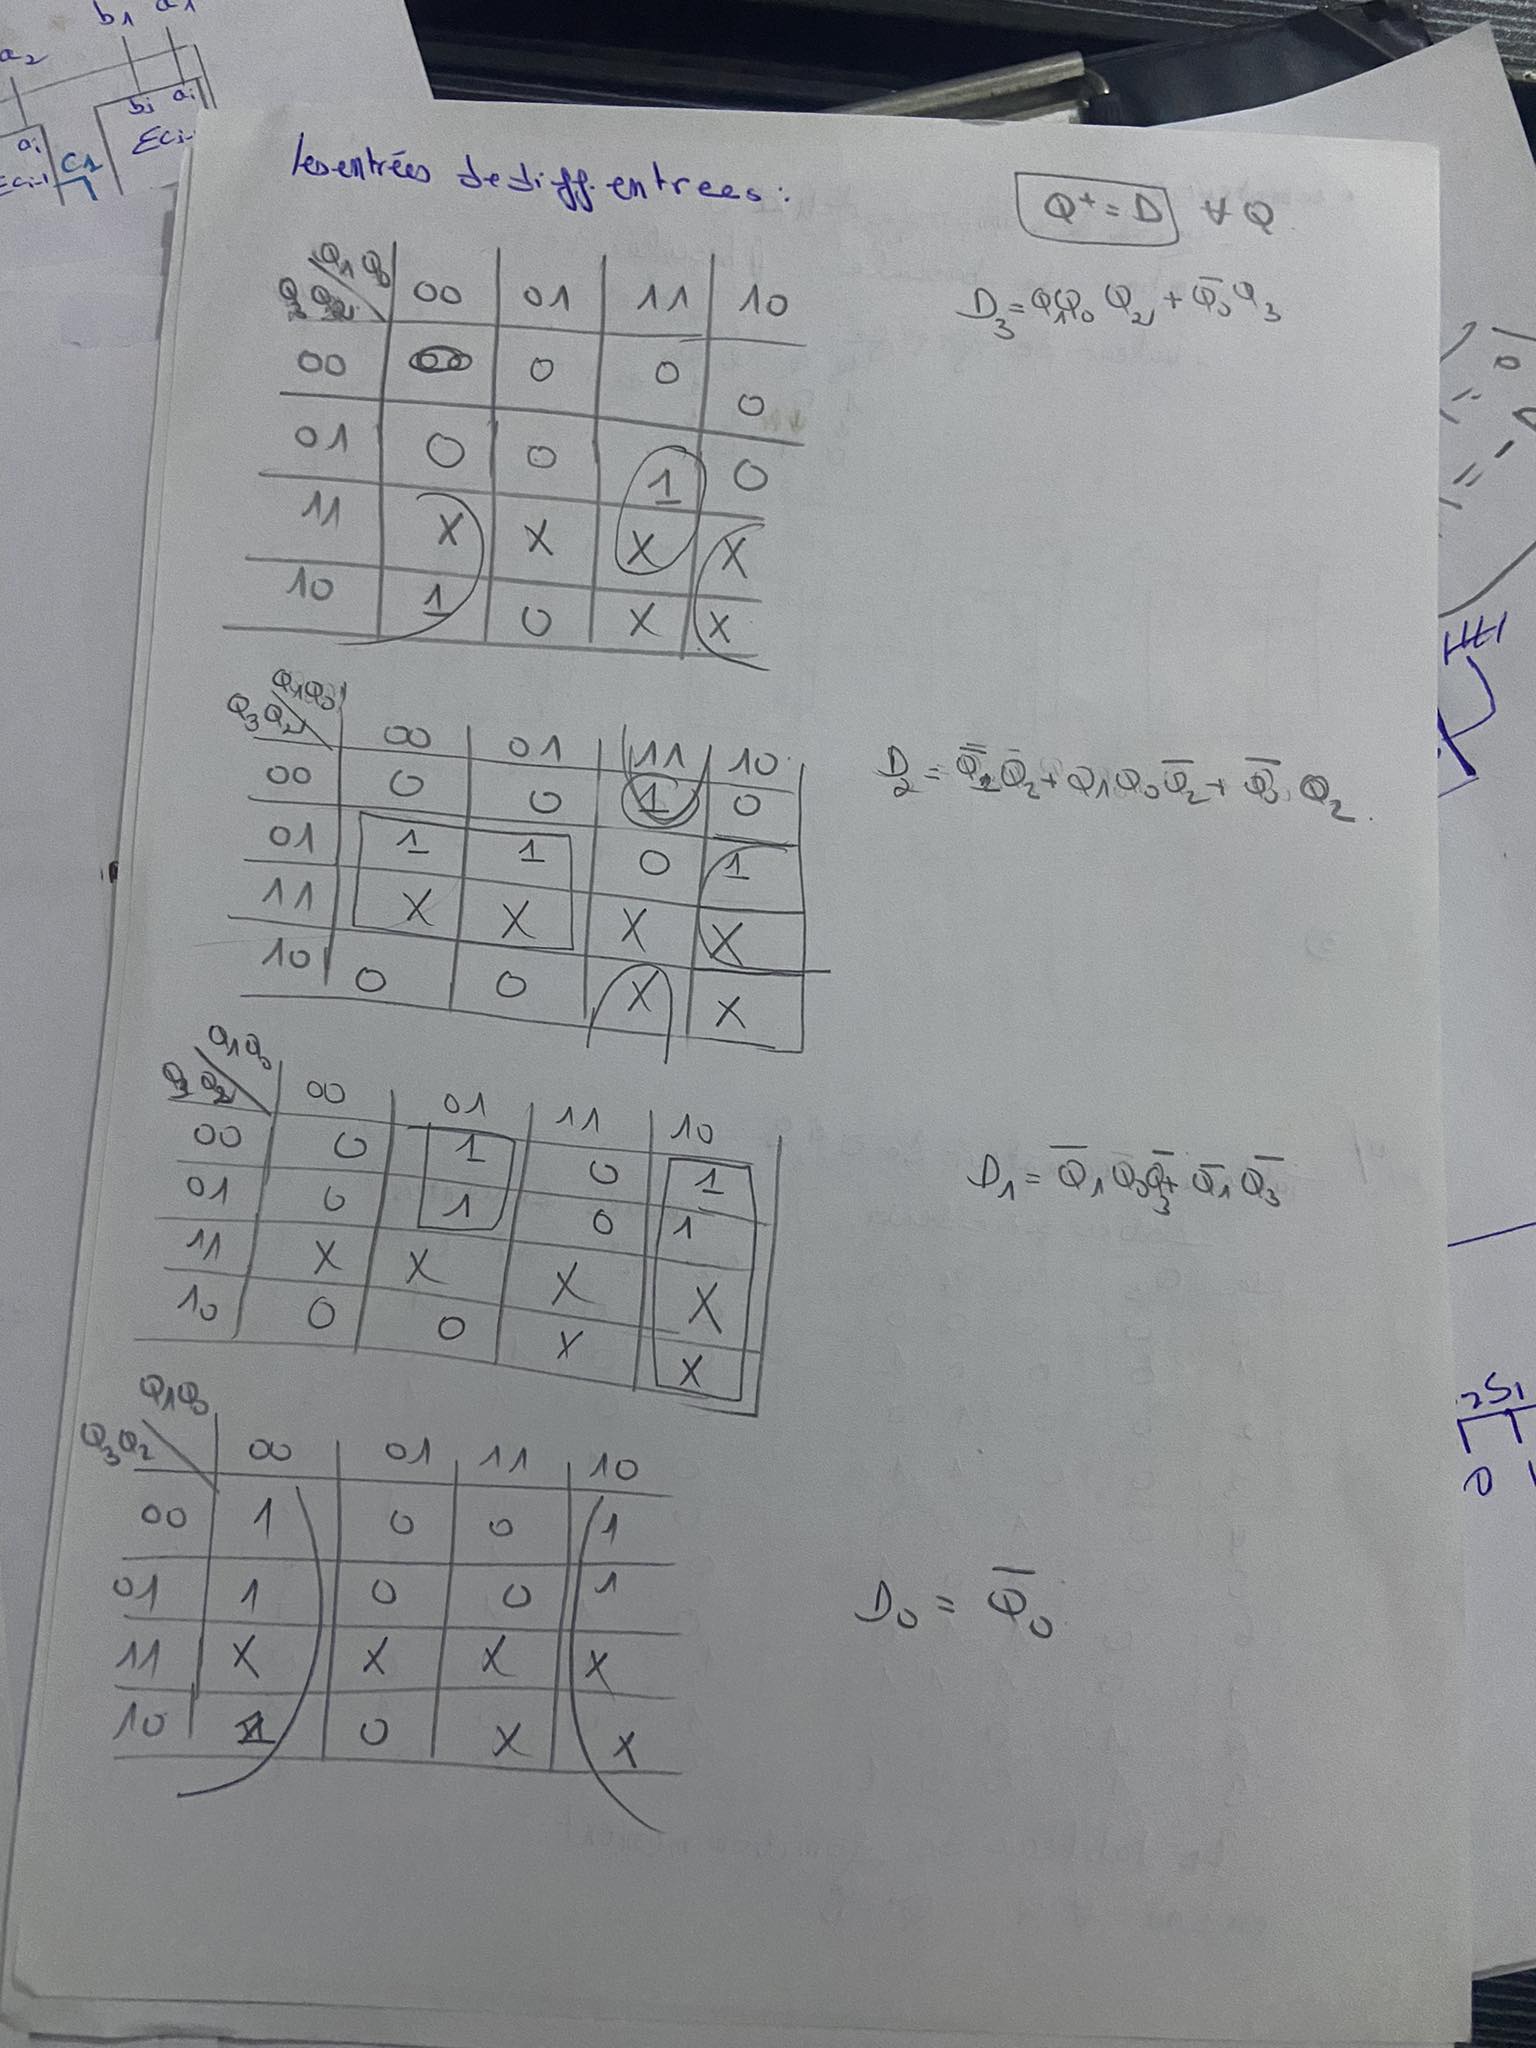 b1 a1
a2
bi ai
ai
C1
Les entrées de diff. entrees :
Q⁺ = D ∀ Q
Q1 Q0
Q3 Q2
00 01 11 10
00 0 0 0
01 0 0 1 0
11 X X X X
10 1 0 X X
D3 = Q1Q0 Q2 + Q̅0 Q3
Q1Q0
Q3Q2
00 01 11 10
00 0 0 1 0
01 1 1 0 1
11 X X X X
10 0 0 X X
D2 = Q̅2 + Q1 Q0 Q̅2 + Q̅0 Q2
Q1Q0
Q3 Q2
00 01 11 10
00 0 1 0 1
01 0 1 0 1
11 X X X X
10 0 0 X X
D1 = Q̅1 Q0 Q̅3 + Q̅1 Q̅3
Q1Q0
Q3Q2
00 01 11 10
00 1 0 0 1
01 1 0 0 1
11 X X X X
10 1 0 X X
D0 = Q̅0